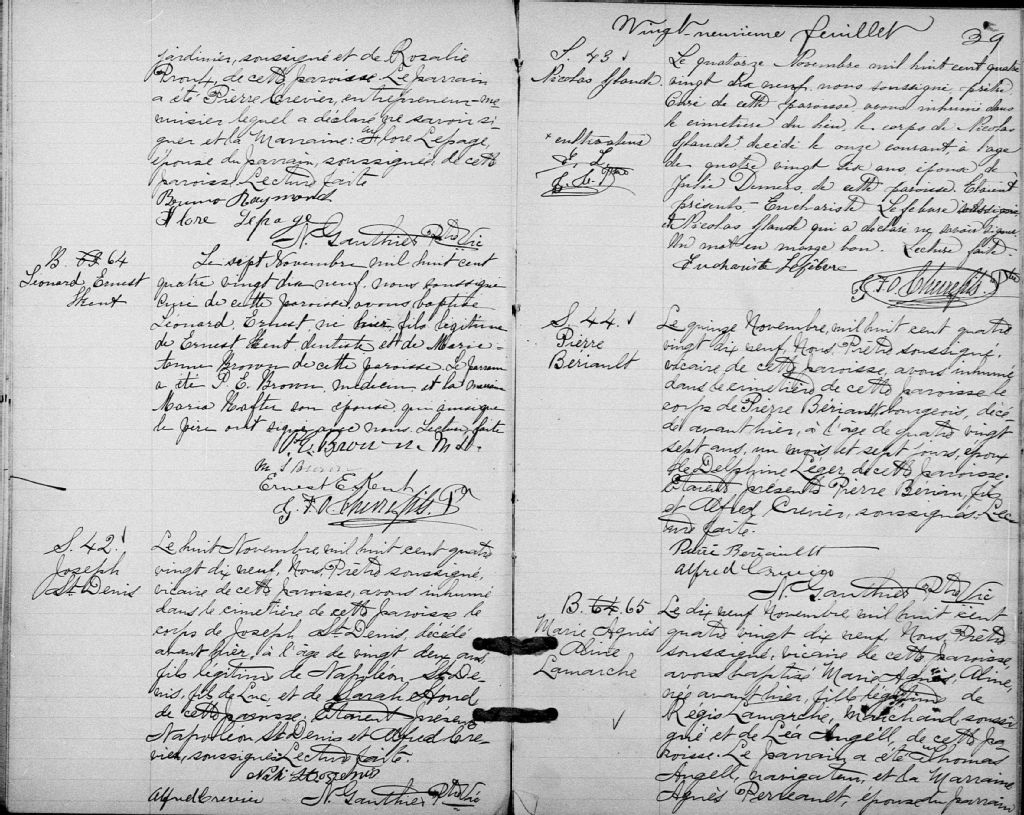 jardinier, soussigné et de Rosalie
Proulx, de cette paroisse. Le parrain
a été Pierre Crevier, entrepreneur-me
nuisier lequel a déclaré ne savoir si-
gner et la Marraine: Flore Lepage,
épouse du parrain, soussignée, de cette
paroisse. Lecture faite
Bruno Raymond
Flore Lepage
N. Gauthier Ptre Vic
B. 64
Léonard Ernest
Kent
Le sept Novembre mil huit cent
quatre vingt dix neuf, nous soussigné
Curé de cette paroisse avons baptisé
Léonard, Ernest, né hier, fils légitime
de Ernest Kent dentiste et de Marie-
Brown de cette paroisse. Le parrain
a été P. E. Brown, médecin et la marraine
Maria son épouse, qui ainsi que
le père ont signé avec nous. Lecture faite
P. E. Brown M.D.
M Brown
Ernest E Kent
G. F. O Chevrefils Ptr
S. 42.
Joseph
St Denis
Le huit Novembre mil huit cent quatre
vingt dix neuf, Nous, Prêtre soussigné,
vicaire de cette paroisse, avons inhumé
dans le cimetière de cette paroisse le
corps de Joseph St Denis, décédé
avant hier, à l'âge de vingt deux ans,
fils légitime de Napoléon St De-
nis, fils de Luc, et de Sarah
de cette paroisse. Etaient présents
Napoléon St Denis et Alfred Cre-
vier, soussignés Lecture faite.
Alfred Crevier N. Gauthier Ptre Vic
Vingt-neuvième feuillet 29
S. 43
Nicolas
Le quatorze Novembre mil huit cent quatre
vingt dix neuf, nous soussigné prêtre
Curé de cette paroisse avons inhumé dans
le cimetière du lieu, le corps de Nicolas
décédé le onze courant, à l'age
de quatre vingt dix ans, époux de
Julie Demers, de cette paroisse. Etaient
présents- Euchariste Lefebvre soussigné
et Nicolas qui a déclaré ne savoir signer
Un mot en marge bon. Lecture faite.
+ cultivateur
E. L.
Euchariste Lefebvre
G F O Chevrefils Ptre
S. 44.
Pierre
Bériault
Le quinze Novembre, mil huit cent quatre
vingt dix neuf, Nous, Prêtre soussigné,
vicaire de cette paroisse, avons inhumé
dans le cimetière de cette paroisse le
corps de Pierre Bériault, bourgeois, décé-
dé avant hier, à l'âge de quatre vingt
sept ans, un mois et sept jours, époux
de Delphine Léger, de cette paroisse.
Etaient présents Pierre Bériau, fils
et Alfred Crevier, soussignés. Lec-
ture faite.
Pierre Beriault
Alfred Crevier
N. Gauthier Ptre Vic
B. 64. 65
Marie Agnès
Aline
Lamarche
Le dix neuf Novembre mil huit cent
quatre vingt dix neuf Nous, Prêtre
soussigné, vicaire de cette paroisse,
avons baptisé Marie, Agnès, Aline,
née avant hier, fille légitime de
Régis Lamarche, Marchand, soussi-
gné et de Léa Angell de cette pa-
roisse. Le parrain a été Thomas
Angell, navigateur, et la Marraine
Agnès Perreault, épouse du parrain